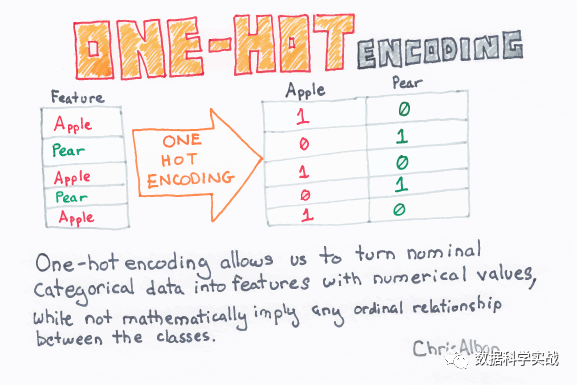 ONE-HOT ENCODING
Feature
Apple
Pear
Apple
Pear
Apple
ONE
HOT
ENCODING
Apple Pear
1 0
0 1
1 0
0 1
1 0
One-hot encoding allows us to turn nominal
categorical data into features with numerical values,
while not mathematically imply any ordinal relationship
between the classes.
Chris Albon
数据科学实战